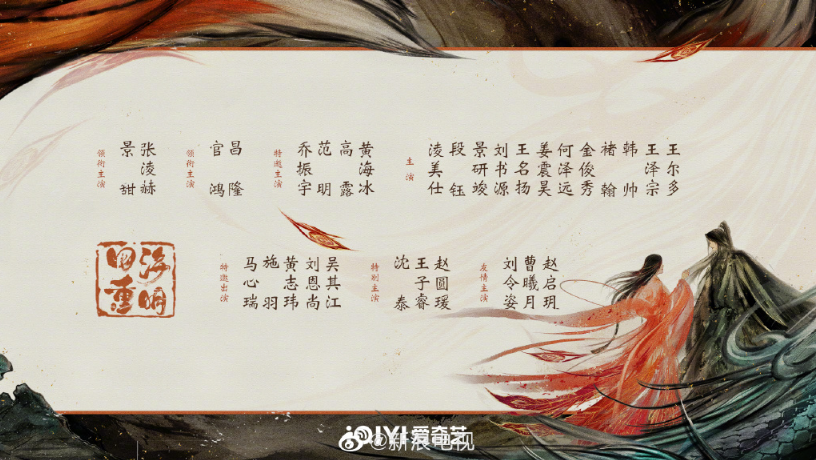 领衔主演
景甜
张凌赫
领衔主演
官鸿
昌隆
特邀主演
乔振宇
范明
高露
黄海冰
主演
凌美仕
段钰
景研竣
刘书源
王名扬
姜震昊
何泽远
金俊秀
褚翰
韩帅
王泽宗
王尔多
四海重明
特邀出演
马心瑞
施羽
黄志玮
刘恩尚
吴其江
特别主演
沈泰
王子睿
赵圆瑗
友情主演
刘令姿
曹曦月
赵启玥
iQIYI 爱奇艺
@新浪电视